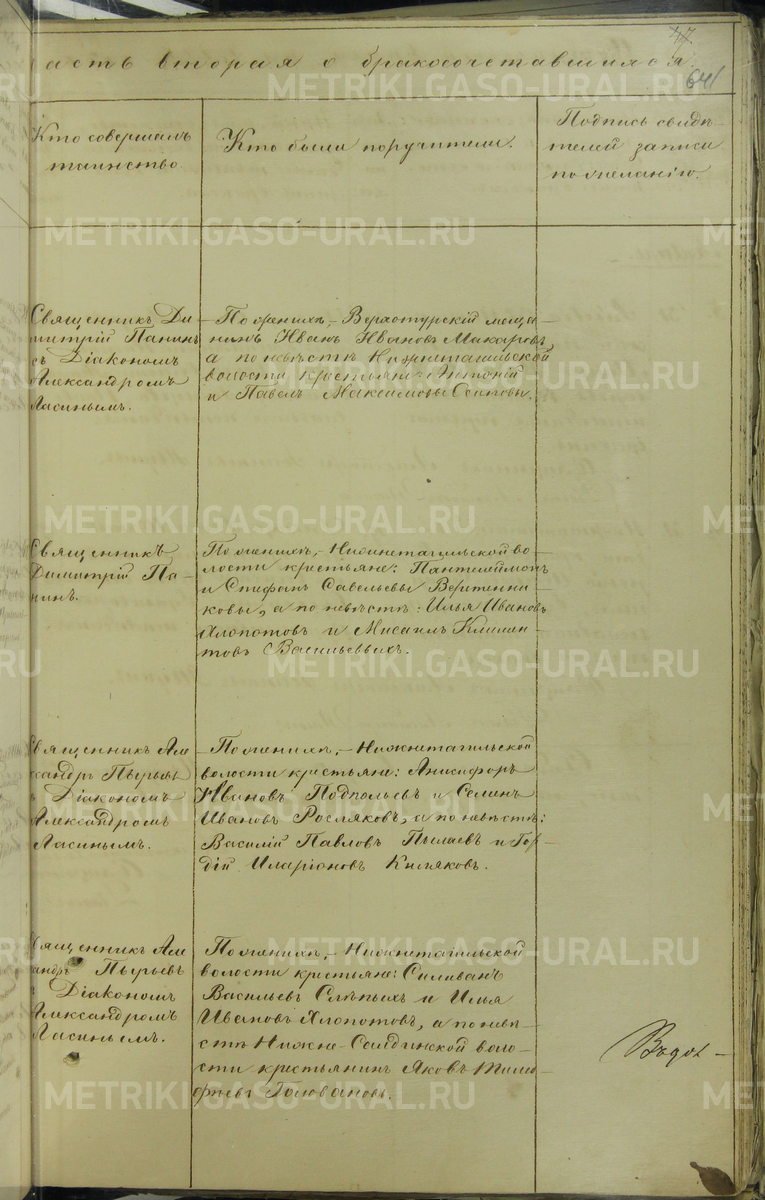 47
асть вторая о бракосочетавшихся.
641
Кто совершалъ
таинство.
Кто были поручители.
Подпись свидѣ-
телей записи
по желанію.
Священникъ Ди-
митрій Панинъ
съ Діакономъ
Александромъ
Ласинымъ.
По женихѣ, - Верхотурскій мѣща-
нинъ Иванъ Ивановъ Макаровъ,
а по невѣстѣ Нижнетагильской
волости крестьяне: Антоній
и Павелъ Максимовы Осиповы.
Священникъ
Димитрій Па-
нинъ.
По женихѣ, - Нижнетагильской во-
лости крестьяне: Пантелеймонъ
и Стефанъ Савельевы Веретенни-
ковы, а по невѣстѣ: Илья Ивановъ
Хлопотовъ и Мисаилъ Климен-
товъ Васильевыхъ.
вященникъ Але
сандръ Пырьевъ
ъ Діакономъ
Александромъ
Ласинымъ.
По женихѣ, - Нижнетагильской
волости крестьяне: Аникифоръ
Ивановъ Подпольевъ и Селинъ
Ивановъ Росляковъ, а по невѣстѣ:
Василій Павловъ Пылаевъ и Гор-
дій Иларіоновъ Князковъ.
вященникъ Але
андръ Пырьевъ
Діакономъ
Александромъ
Ласинымъ.
По женихѣ, - Нижнетагильской
волости крестьяне: Силиванъ
Васильевъ Слѣпыхъ и Илья
Ивановъ Хлопотовъ, а по невѣ-
стѣ Нижне-Салдинской воло-
сти крестьянинъ Яковъ Тимо-
фѣевъ Головановъ.
METRIKI.GASO-URAL.RU
METRIKI.GASO-URAL.RU
METRIKI.GASO-URAL.RU
METRIKI.GASO-URAL.RU
METRIKI.GASO-URAL.RU
METRIKI.GASO-URAL.RU
METRIKI.GASO-URAL.RU
METRIKI.GASO-URAL.RU